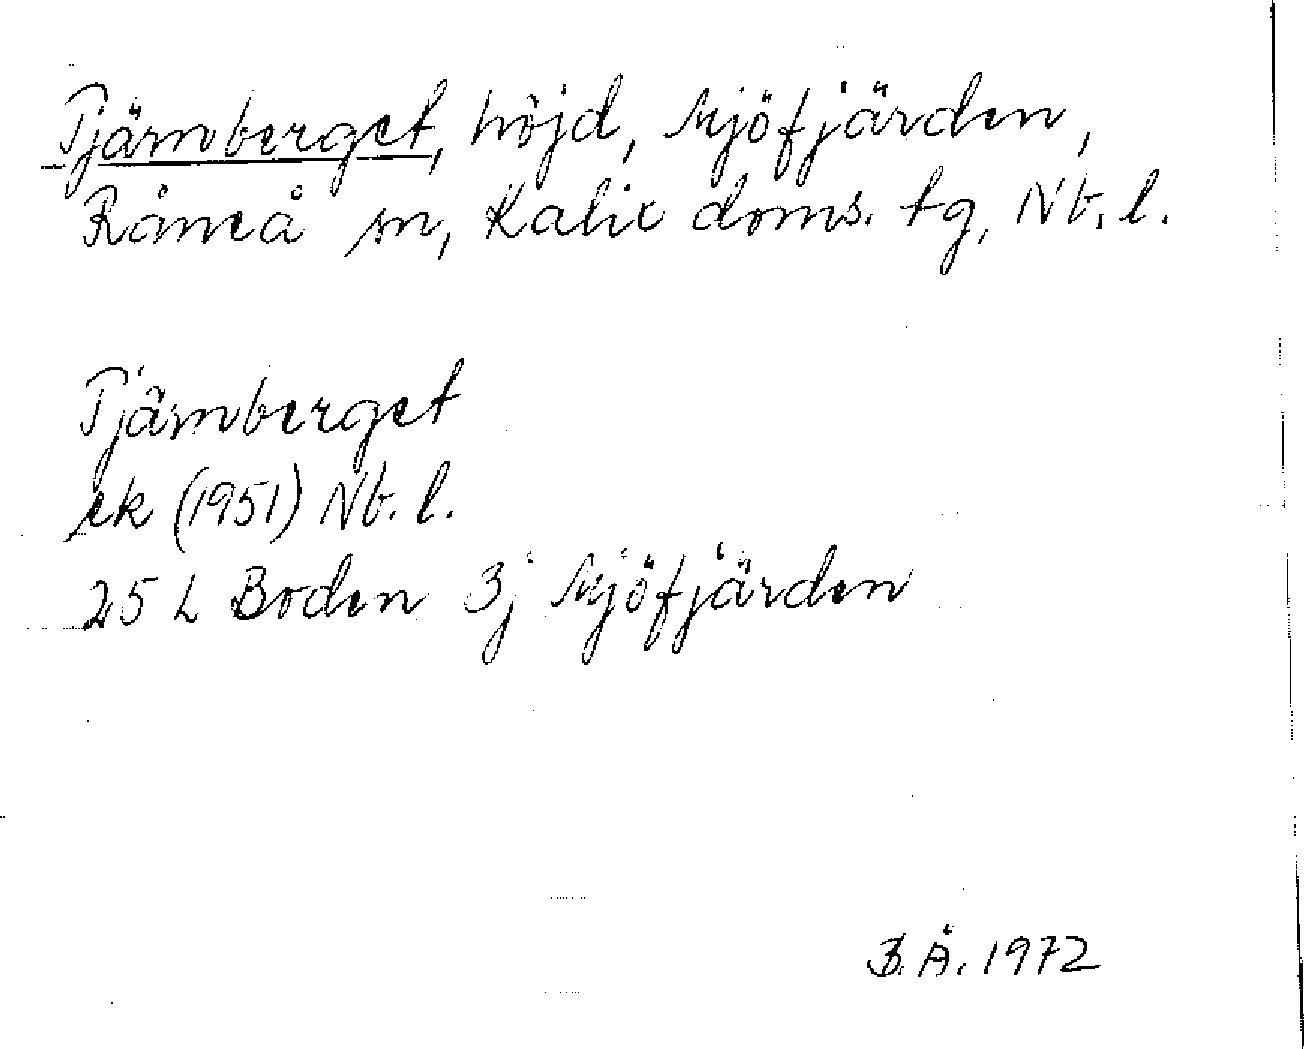 Tjärnberget, höjd, Mjöfjärden,
Råneå sn, Kalix doms. tg, Nb. l.
Tjärnberget
ek (1951) Nb. l.
25 L Boden 3j Mjöfjärden
B. Å. 1972